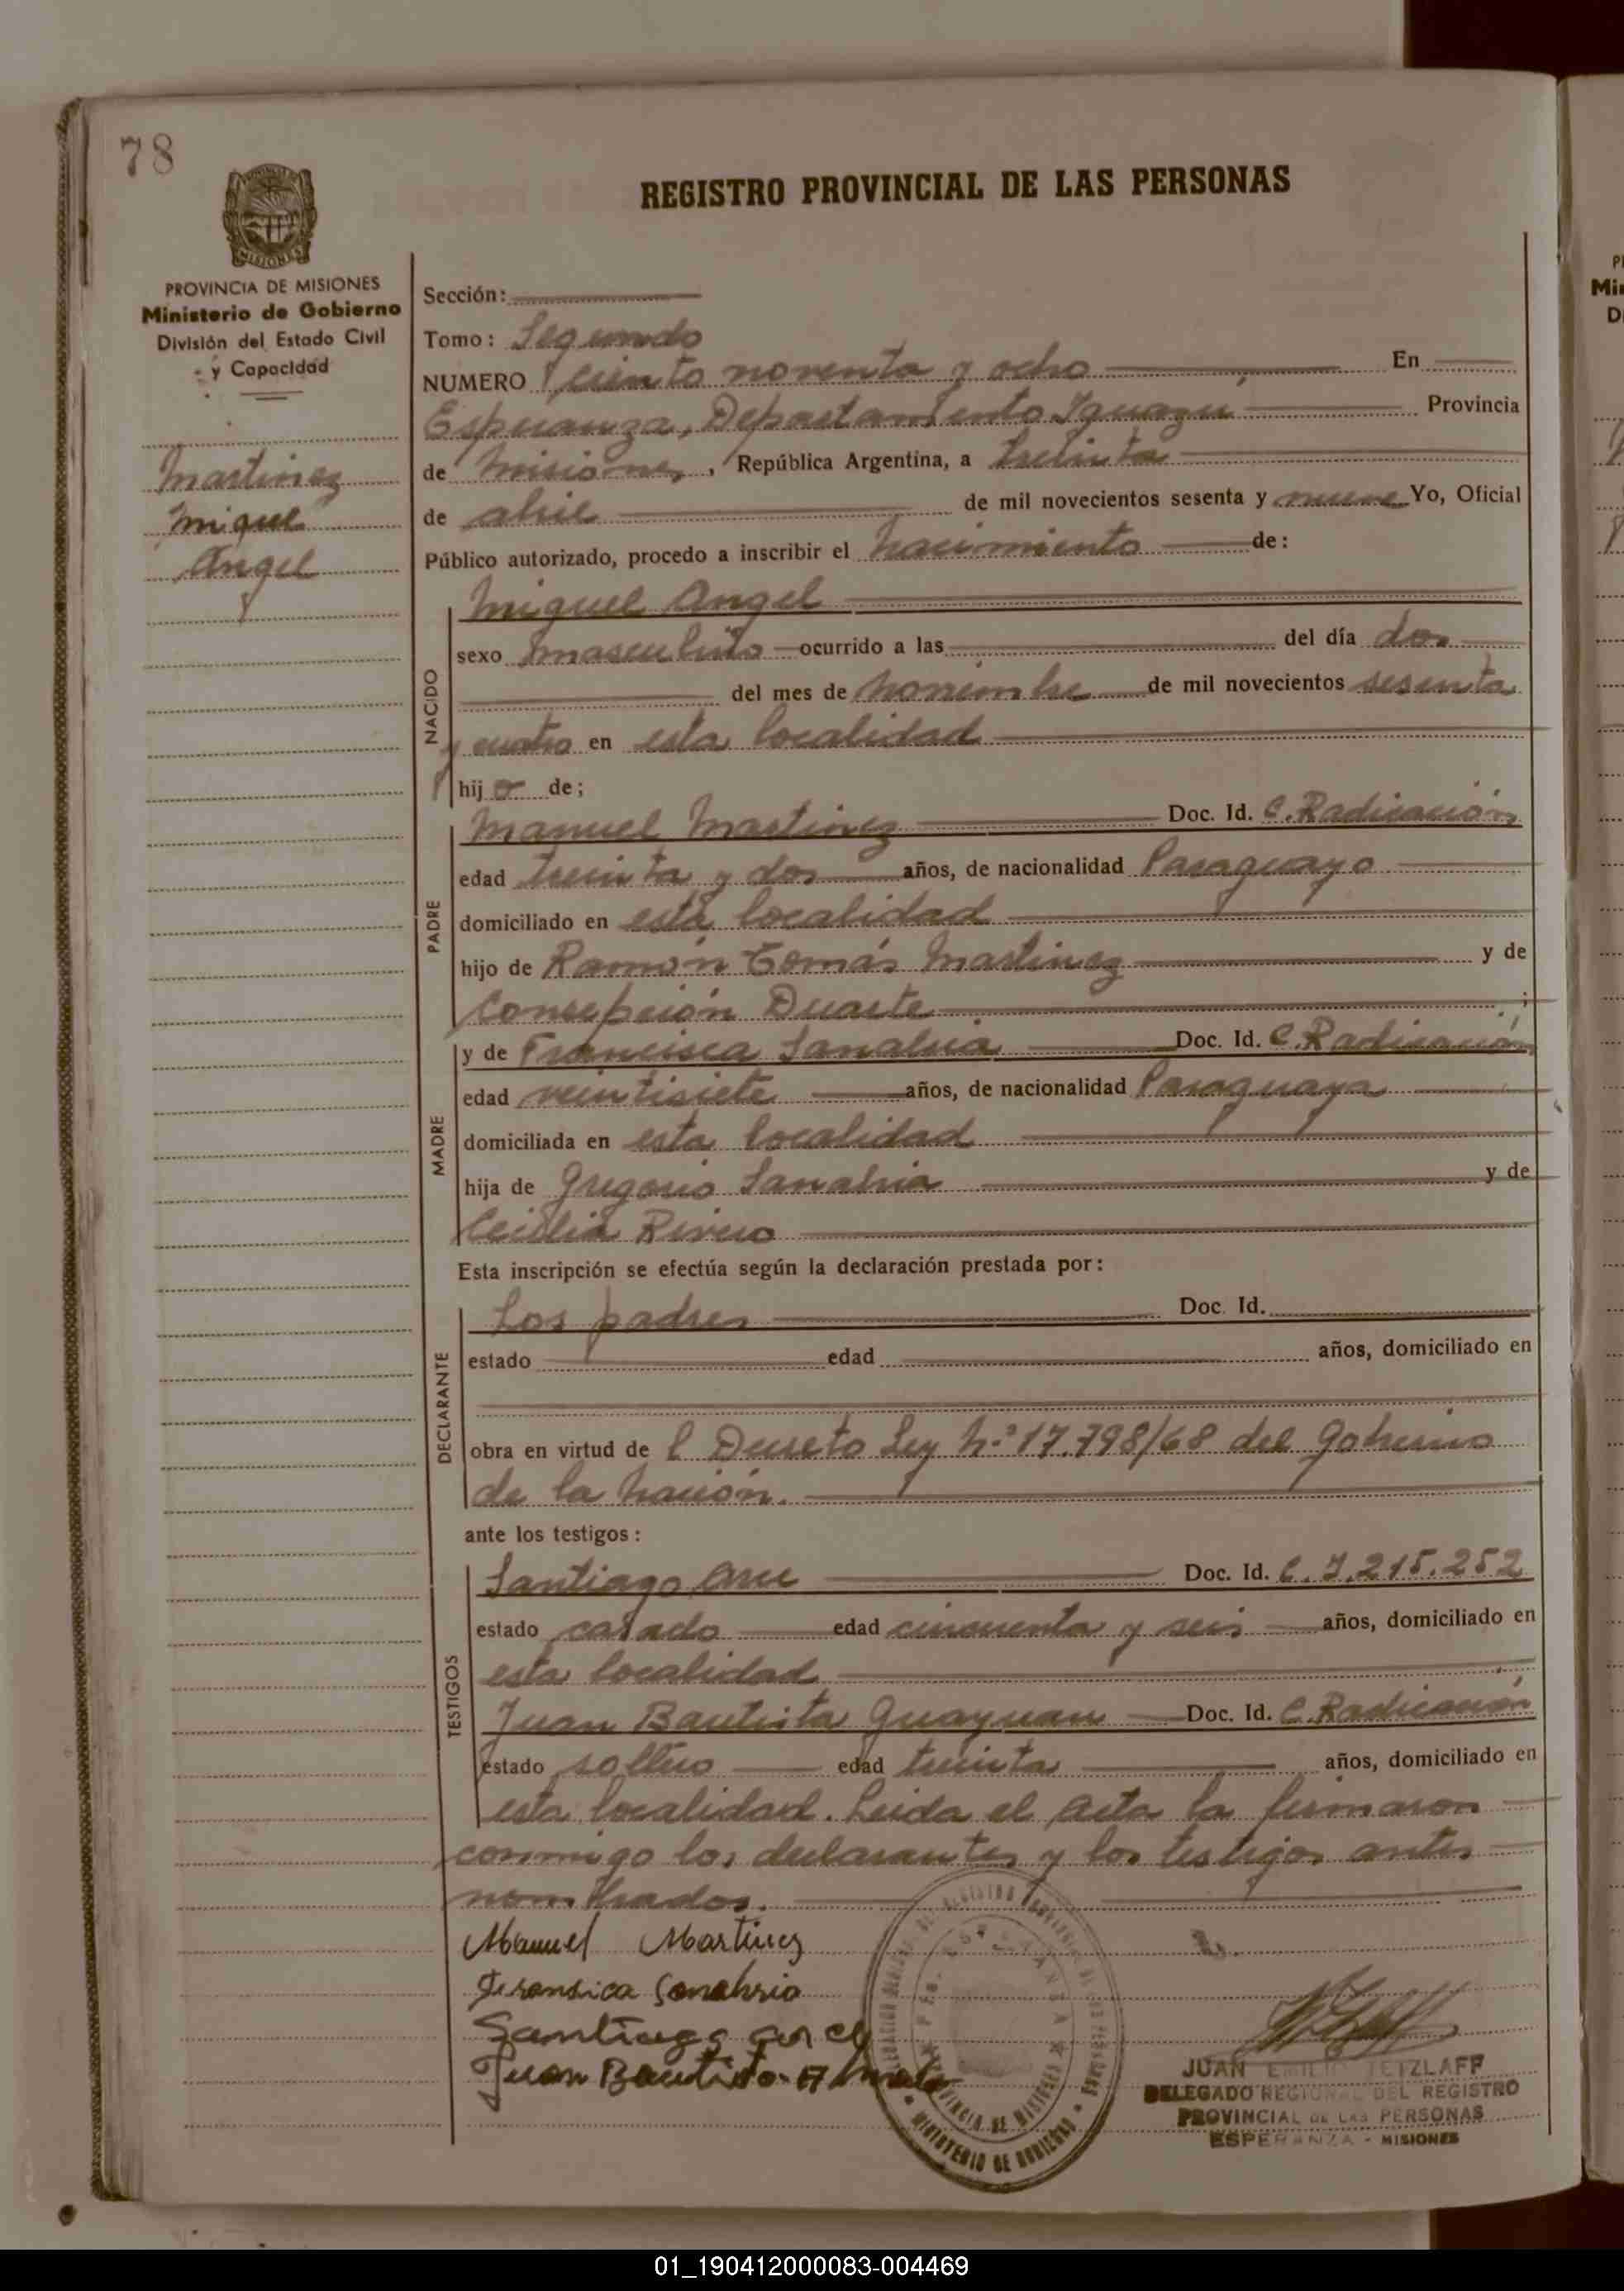 78
MISIONES
PROVINCIA DE MISIONES
Ministerio de Gobierno
División del Estado Civil
y Capacidad
Martinez
Miguel
Angel
REGISTRO PROVINCIAL DE LAS PERSONAS
Sección:
Tomo: Segundo
NUMERO ciento noventa y ocho En
Esperanza, Departamento Iguazú Provincia
de Misiones, República Argentina, a treinta
de abril de mil novecientos sesenta y nueve Yo, Oficial
Público autorizado, procedo a inscribir el nacimiento de:
NACIDO
Miguel Angel
sexo masculino ocurrido a las del día dos
del mes de noviembre de mil novecientos sesenta
y cuatro en esta localidad
hijo de;
PADRE
Manuel Martinez Doc. Id. C. Radicación
edad treinta y dos años, de nacionalidad Paraguayo
domiciliado en esta localidad
hijo de Ramón Tomás Martinez y de
Concepción Duarte ;
MADRE
y de Francisca Sanabria Doc. Id. C. Radicación
edad veintisiete años, de nacionalidad Paraguaya
domiciliada en esta localidad
hija de Gregorio Sanabria y de
Cecilia Rivero
Esta inscripción se efectúa según la declaración prestada por:
DECLARANTE
Los padres Doc. Id.
estado edad años, domiciliado en
obra en virtud de l Decreto Ley N.º 17.798/68 del Gobierno
de la Nación.
ante los testigos:
TESTIGOS
Santiago Arce Doc. Id. C. I. 215.252
estado casado edad cincuenta y seis años, domiciliado en
esta localidad
Juan Bautista Doc. Id. C. Radicación
estado soltero edad treinta años, domiciliado en
esta localidad. Leida el acta la firmaron
conmigo los declarantes y los testigos antes
nombrados.
Manuel Martinez
Sanabria
Santiago arce
Juan Bautista
ESPERANZA
PROVINCIA DE MISIONES
MINISTERIO DE GOBIERNO
JUAN EMILIO TETZLAFF
DELEGADO REGIONAL DEL REGISTRO
PROVINCIAL DE LAS PERSONAS
ESPERANZA - MISIONES
01_190412000083-004469